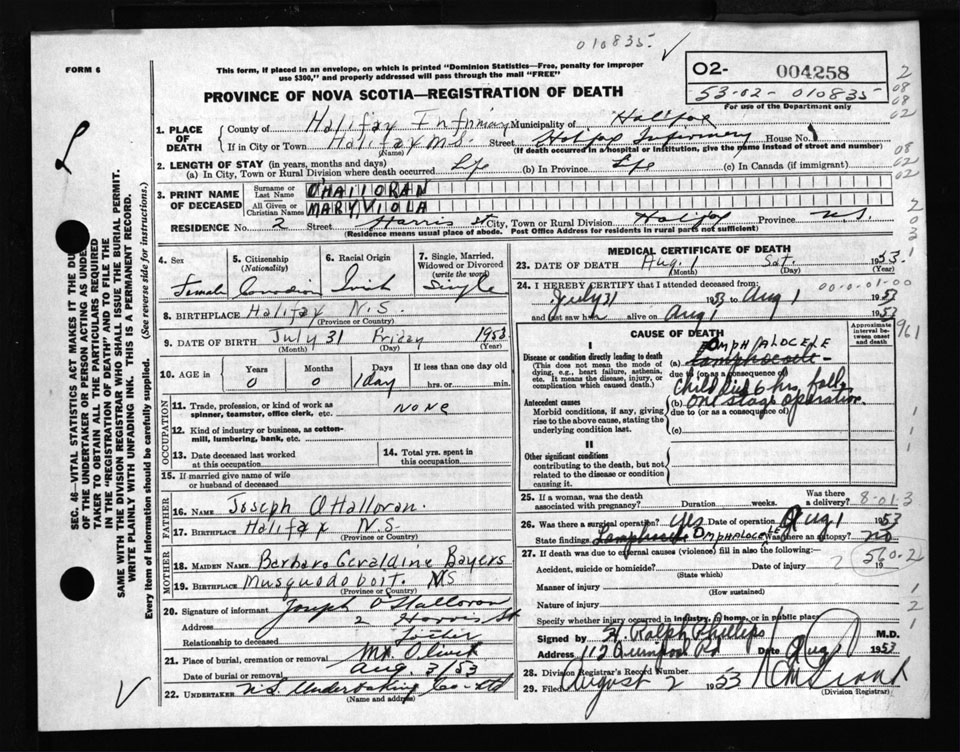 010835
FORM 6
This form, if placed in an envelope, on which is printed "Dominion Statistics—Free, penalty for improper
use $300," and properly addressed will pass through the mail "FREE"
PROVINCE OF NOVA SCOTIA—REGISTRATION OF DEATH
02- 004258
53-02-010835
For use of the Department only
1. PLACE OF DEATH
County of Halifax Infirmary Municipality of Halifax
If in City or Town Halifax N.S. Street Halifax Infirmary House No.
(Name) (If death occurred in a hospital or institution, give the name instead of street and number)
2. LENGTH OF STAY (in years, months and days)
(a) In City, Town or Rural Division where death occurred Life (b) In Province Life (c) In Canada (if immigrant)
3. PRINT NAME OF DECEASED
Surname or Last Name OHALLORAN
All Given or Christian Names MARY VIOLA
RESIDENCE No. 2 Street Harris St City, Town or Rural Division Halifax Province N.S.
(Residence means usual place of abode. Post Office Address for residents in rural parts not sufficient)
4. Sex Female
5. Citizenship (Nationality) Canadian
6. Racial Origin Irish
7. Single, Married, Widowed or Divorced (write the word) Single
8. BIRTHPLACE Halifax N.S.
(Province or Country)
9. DATE OF BIRTH July 31 Friday 1953
(Month) (Day) (Year)
10. AGE in Years 0 Months 0 Days 1 day If less than one day old
hrs. or min.
OCCUPATION
11. Trade, profession, or kind of work as spinner, teamster, office clerk, etc. none
12. Kind of industry or business, as cotton-mill, lumbering, bank, etc.
13. Date deceased last worked at this occupation
14. Total yrs. spent in this occupation
15. If married give name of wife or husband of deceased
FATHER
16. Name Joseph O'Halloran.
17. Birthplace Halifax N.S.
(Province or Country)
MOTHER
18. MAIDEN NAME Barbara Geraldine Bayers
19. BIRTHPLACE Musquodoboit. N.S
(Province or Country)
20. Signature of informant Joseph O'Halloran
Address 2 Harris St
Relationship to deceased Father
21. Place of burial, cremation or removal Mt. Olivet
Date of burial or removal Aug. 3/53
22. UNDERTAKER N.S. Undertaking Co. Ltd
(Name and address)
MEDICAL CERTIFICATE OF DEATH
23. DATE OF DEATH Aug. 1 Sat. 1953.
(Month) (Day) (Year)
24. I HEREBY CERTIFY that I attended deceased from:
July 31 1953 to Aug 1 1953
and last saw h alive on Aug 1 1953
CAUSE OF DEATH
Approximate interval between onset and death
I
Disease or condition directly leading to death
(This does not mean the mode of dying, e.g., heart failure, asthenia, etc. It means the disease, injury, or complication which caused death.)
OMPHALOCELE
(a)
due to (or as a consequence of)
Child died 6 hrs. foll.
Antecedent causes
Morbid conditions, if any, giving rise to the above cause, stating the underlying condition last.
(b) one stage operation.
due to (or as a consequence of)
(c)
II
Other significant conditions
contributing to the death, but not related to the disease or condition causing it.
25. If a woman, was the death associated with pregnancy? Duration weeks. Was there a delivery?
8-01-3
26. Was there a surgical operation? yes Date of operation Aug 1 1953
State findings OMPHALOCELE Was there an autopsy? no
27. If death was due to external causes (violence) fill in also the following:—
560.2
Accident, suicide or homicide? Date of injury 19
(State which)
Manner of injury
(How sustained)
Nature of injury
Specify whether injury occurred in industry, in home, or in public place
Signed by H. Ralph Phillips M.D.
Address Date Aug 1 1953
28. Division Registrar's Record Number
29. Filed August 2 1953
(Division Registrar)
SEC. 46—VITAL STATISTICS ACT MAKES IT THE DUTY
OF THE UNDERTAKER OR PERSON ACTING AS UNDER-
TAKER TO OBTAIN ALL THE PARTICULARS REQUIRED
IN THE "REGISTRATION OF DEATH" AND TO FILE THE
SAME WITH THE DIVISION REGISTRAR WHO SHALL ISSUE THE BURIAL PERMIT.
WRITE PLAINLY WITH UNFADING INK. THIS IS A PERMANENT RECORD.
Every item of information should be carefully supplied. (See reverse side for instructions.)